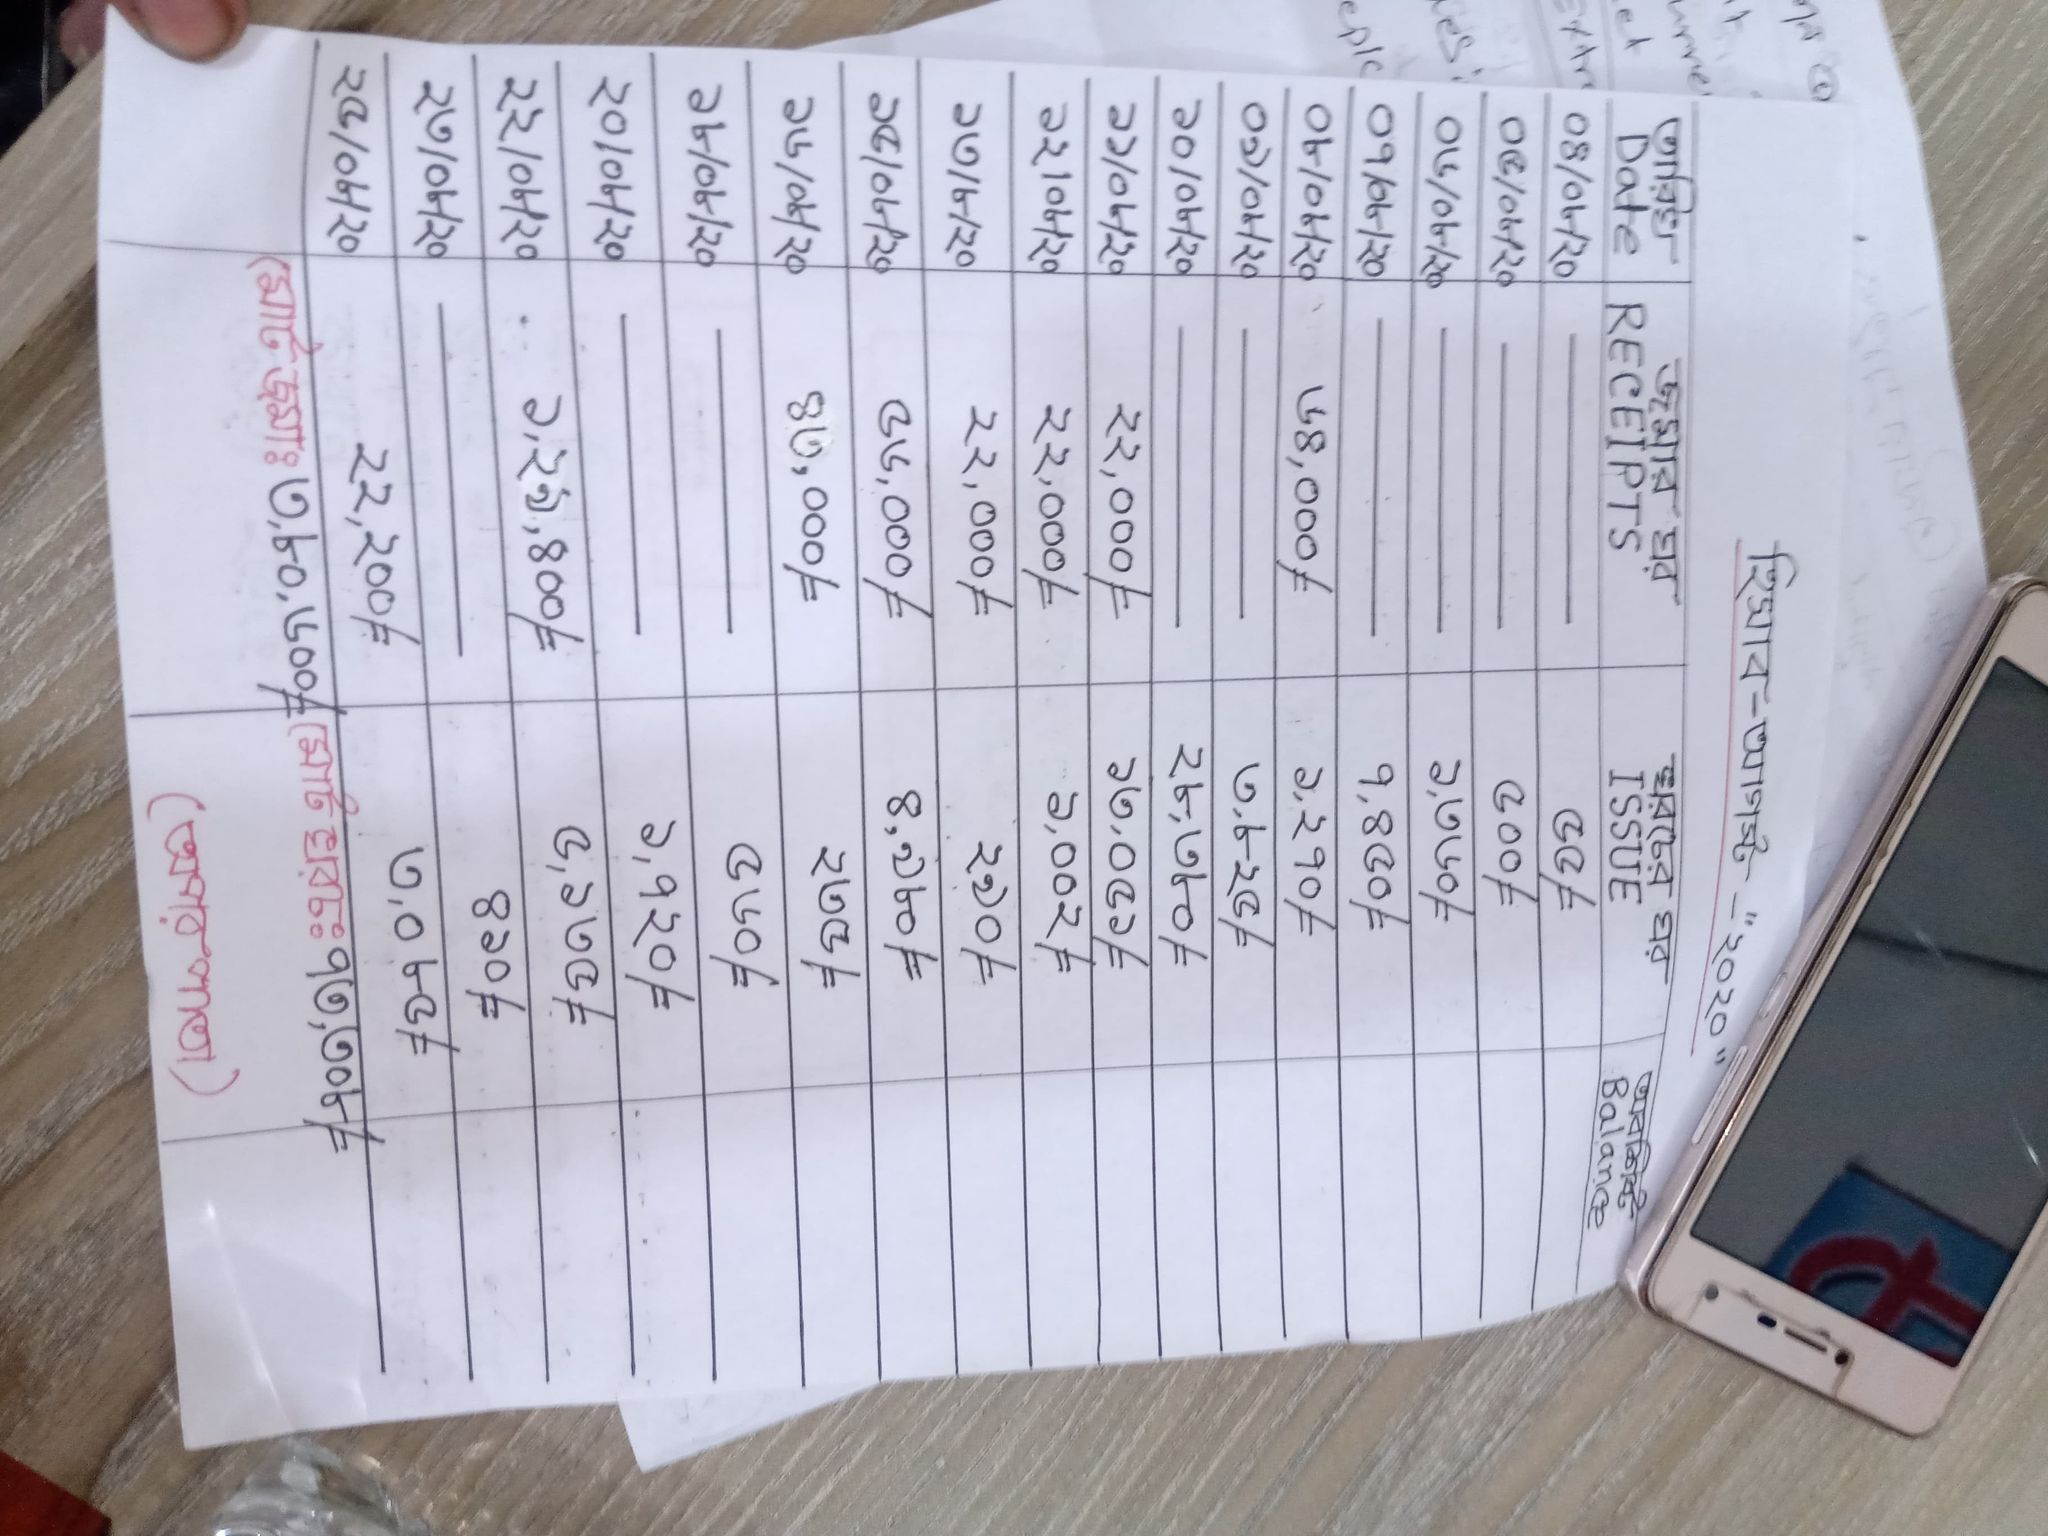 হিসাব-আগস্ট - "২০২০"
তারিখ জমার ঘর খরচের ঘর অবশিষ্ট
Date RECEIPTS ISSUE Balance
০৪/০৮/২০ — ৫৫/=
০৫/০৮/২০ — ৫০০/=
০৬/০৮/২০ — ১,৩৬০/=
০৭/০৮/২০ — ৭,৪৫০/=
০৮/০৮/২০ ৬৪,০০০/= ১,২৭০/=
০৯/০৮/২০ — ৩,৮২৫/=
১০/০৮/২০ — ২৮,৩৮০/=
১১/০৮/২০ ২২,০০০/= ১৩,০৫১/=
১২/০৮/২০ ২২,০০০/= ১,০০২/=
১৩/৮/২০ ২২,০০০/= ২৯০/=
১৫/০৮/২০ ৫৬,০০০/= ৪,৯৮০/=
১৬/০৮/২০ ৪৩,০০০/= ২৩৫/=
১৮/০৮/২০ — ৫৬০/=
২০/০৮/২০ — ১,৭২০/=
২২/০৮/২০ ১,২৯,৪০০/= ৫,১৩৫/=
২৩/০৮/২০ — ৪১০/=
২৫/০৮/২০ ২২,২০০/= ৩,০৮৫/=
মোট জমাঃ ৩,৮০,৬০০/= মোট খরচঃ ৭৩,৩০৮/=
(অপর পাতা)